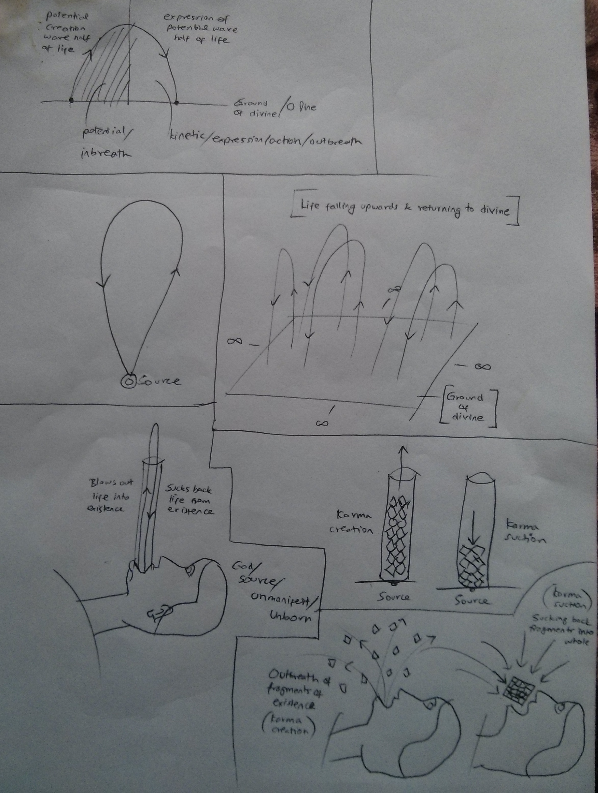 potential
creation
wave half
of life
expression of
potential wave
half of life
Ground
of divine/0 line
potential/
inbreath
kinetic/expression/action/outbreath
[Life falling upwards & returning to divine]
∞
∞
∞
∞
[Ground
of
divine]
Source
Blows out
life into
existence
Sucks back
life from
existence
God/
source/
unmanifest/
unborn
Karma
creation
Source
Karma
suction
Source
Outbreath of
fragments of
existence
(Karma
creation)
(Karma
suction)
Sucking back
fragments into
whole